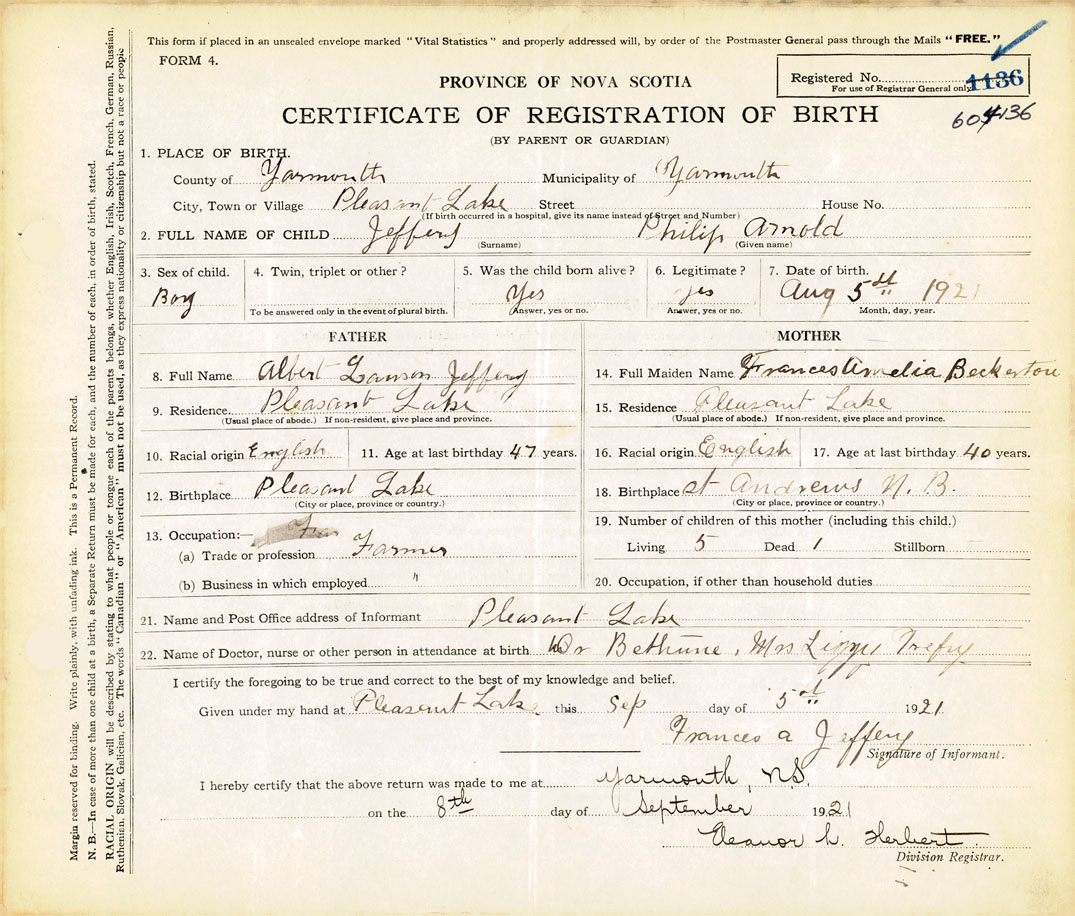 This form if placed in an unsealed envelope marked "Vital Statistics" and properly addressed will, by order of the Postmaster General pass through the Mails "FREE."
FORM 4.
PROVINCE OF NOVA SCOTIA
Registered No. 1136
For use of Registrar General only
CERTIFICATE OF REGISTRATION OF BIRTH
(BY PARENT OR GUARDIAN)
1. PLACE OF BIRTH.
County of Yarmouth Municipality of Yarmouth
City, Town or Village Pleasant Lake Street House No.
(If birth occurred in a hospital, give its name instead of Street and Number)
2. FULL NAME OF CHILD Jeffery Philip Arnold
(Surname) (Given name)
3. Sex of child. 4. Twin, triplet or other? 5. Was the child born alive? 6. Legitimate? 7. Date of birth.
Boy Yes yes Aug 5th 1921
To be answered only in the event of plural birth. Answer, yes or no. Answer, yes or no. Month, day, year.
FATHER MOTHER
8. Full Name Albert Lawson Jeffery 14. Full Maiden Name Frances Amelia Beckerton
9. Residence Pleasant Lake 15. Residence Pleasant Lake
(Usual place of abode.) If non-resident, give place and province. (Usual place of abode.) If non-resident, give place and province.
10. Racial origin English 11. Age at last birthday 47 years. 16. Racial origin English 17. Age at last birthday 40 years.
12. Birthplace Pleasant Lake 18. Birthplace St Andrews N.B.
(City or place, province or country.) (City or place, province or country.)
13. Occupation:— 19. Number of children of this mother (including this child.)
(a) Trade or profession Farmer Living 5 Dead 1 Stillborn
(b) Business in which employed " 20. Occupation, if other than household duties
21. Name and Post Office address of Informant Pleasant Lake
22. Name of Doctor, nurse or other person in attendance at birth Dr Bethune, Mrs Lizzy Trefry
I certify the foregoing to be true and correct to the best of my knowledge and belief.
Given under my hand at Pleasent Lake this Sep day of 5th 1921.
Frances A Jeffery
Signature of Informant.
I hereby certify that the above return was made to me at Yarmouth, N.S.
on the 8th day of September 1921
Eleanor L. Herbert
Division Registrar.
Margin reserved for binding. Write plainly, with unfading ink. This is a Permanent Record.
N. B.—In case of more than one child at a birth, a Separate Return must be made for each, and the number of each, in order of birth, stated.
RACIAL ORIGIN will be described by stating to what people or tongue each of the parents belongs, whether English, Irish, Scotch, French, German, Russian,
Ruthenian, Slovak, Galician, etc. The words "Canadian" or "American" must not be used, as they express nationality or citizenship but not a race or people